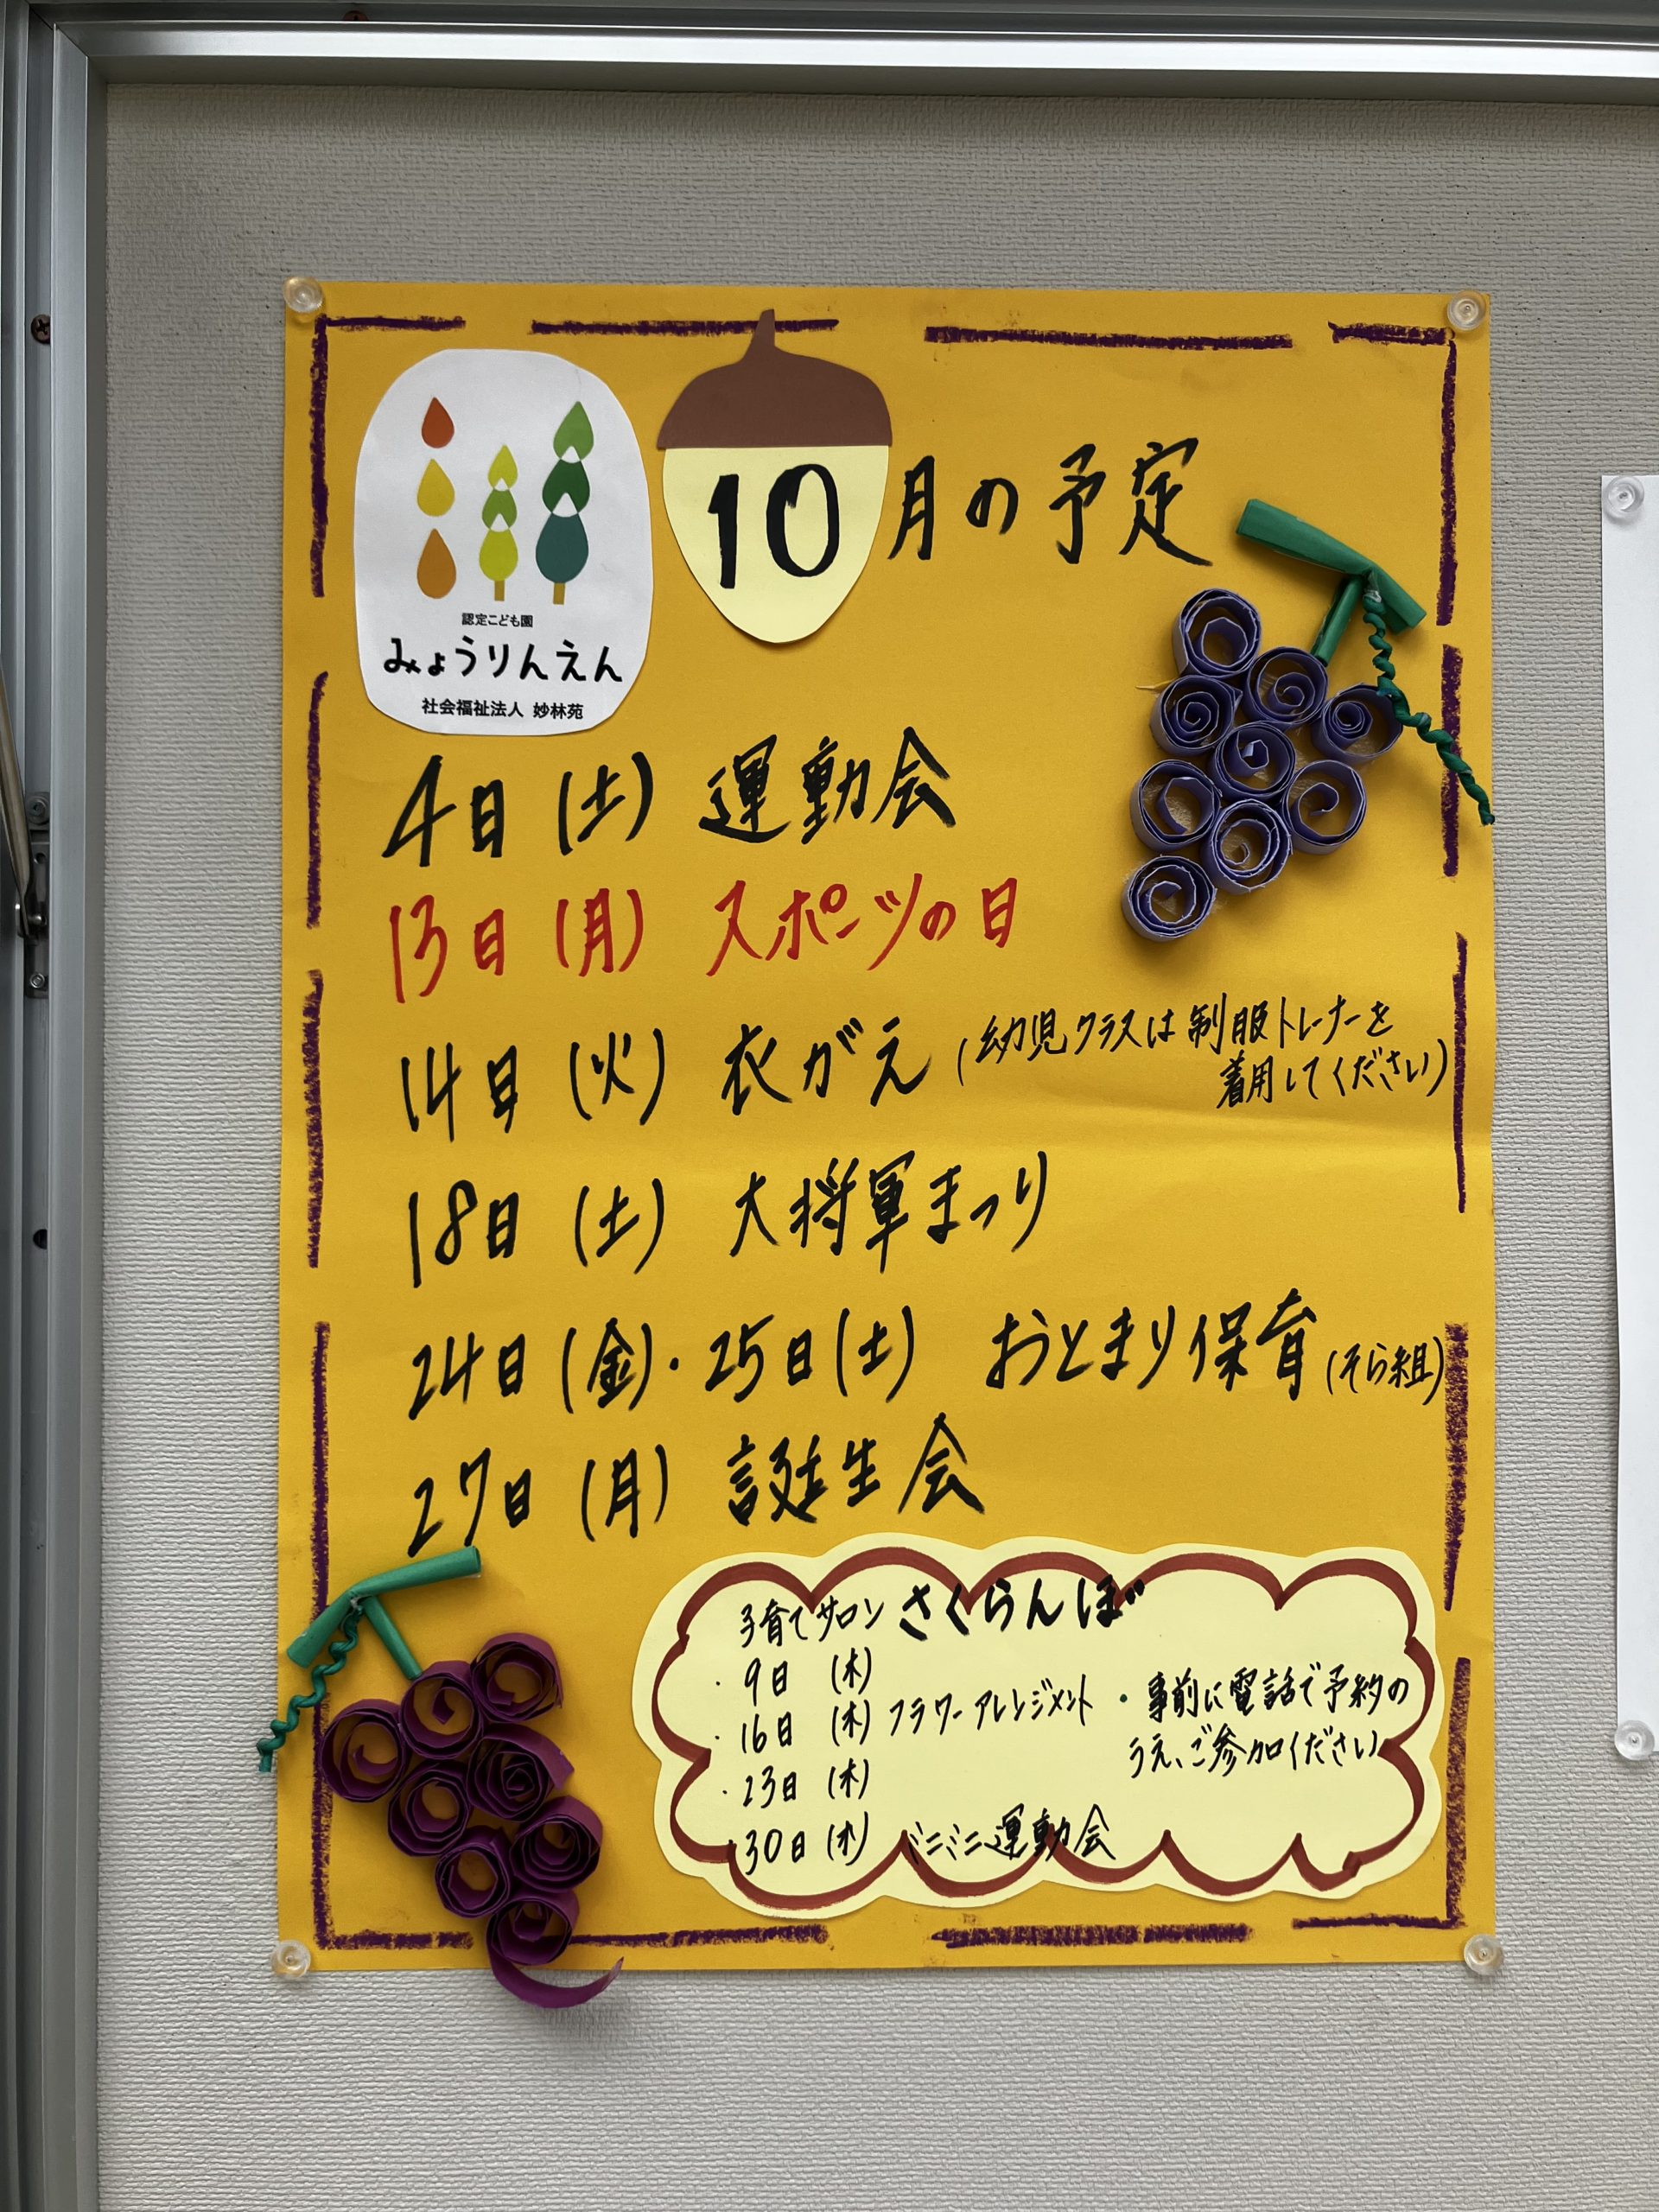 10月の予定
認定こども園
みょうりんえん
社会福祉法人 妙林苑
4日(土) 運動会
13日(月) スポーツの日
14日(火) 衣がえ(幼児クラスは制服トレーナーを
着用してください)
18日(土) 大将軍まつり
24日(金)・25日(土) おとまり保育(そら組)
27日(月) 誕生会
子育てサロン さくらんぼ
・9日(木)
・16日(木) フラワーアレンジメント
・23日(木)
・30日(木) ミニミニ運動会
・事前に電話で予約の
うえ、ご参加ください